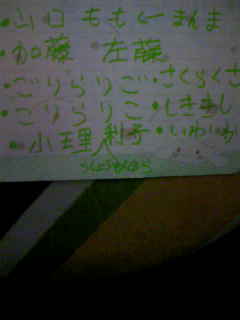 ・山口 ももく←まんま
・加藤 左藤
・ごりらりご・さくらくさ
・こりらりこ・しきまし
・小玉里利子・いわいわ